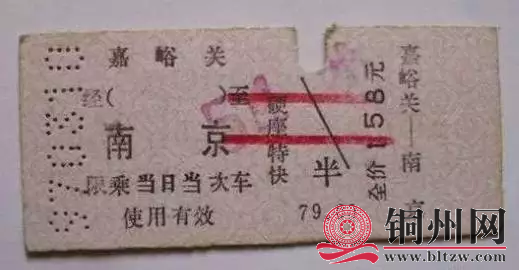 嘉峪关
经( )至
南京
限乘当日当次车
使用有效
硬座特快
半
79
全价158元
嘉峪关—南京
铜州网
www.bltzw.com